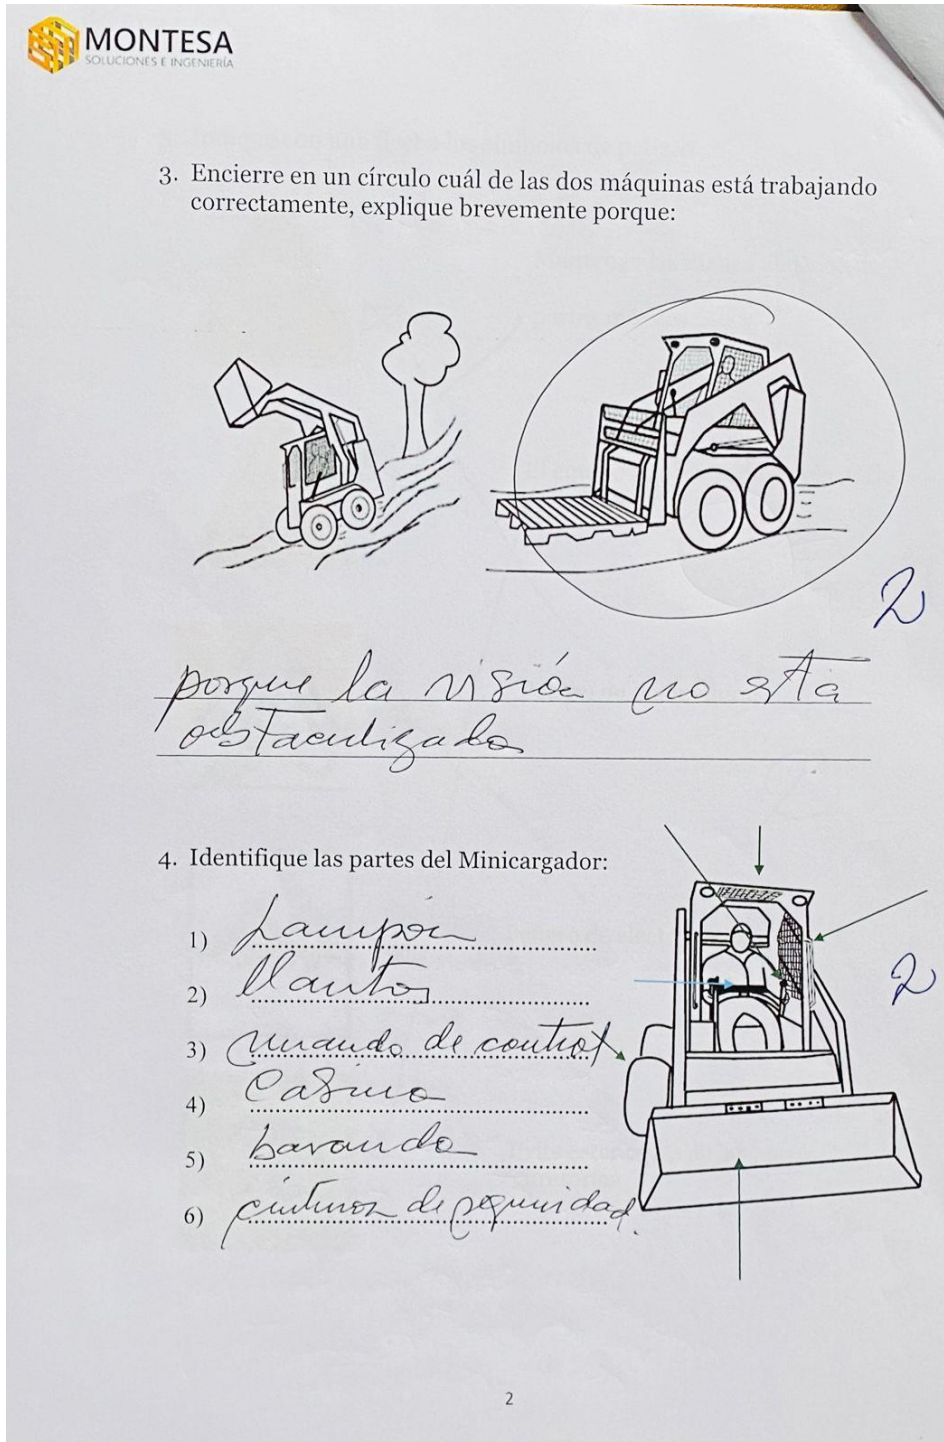 MONTESA
SOLUCIONES E INGENIERÍA
3. Encierre en un círculo cuál de las dos máquinas está trabajando
correctamente, explique brevemente porque:
2
porque la visión no está
obstaculizada
4. Identifique las partes del Minicargador:
1) Lampón
2) llantas
2
3) mando de control
4) Casino
5) baranda
6) cinturon de seguridad.
2